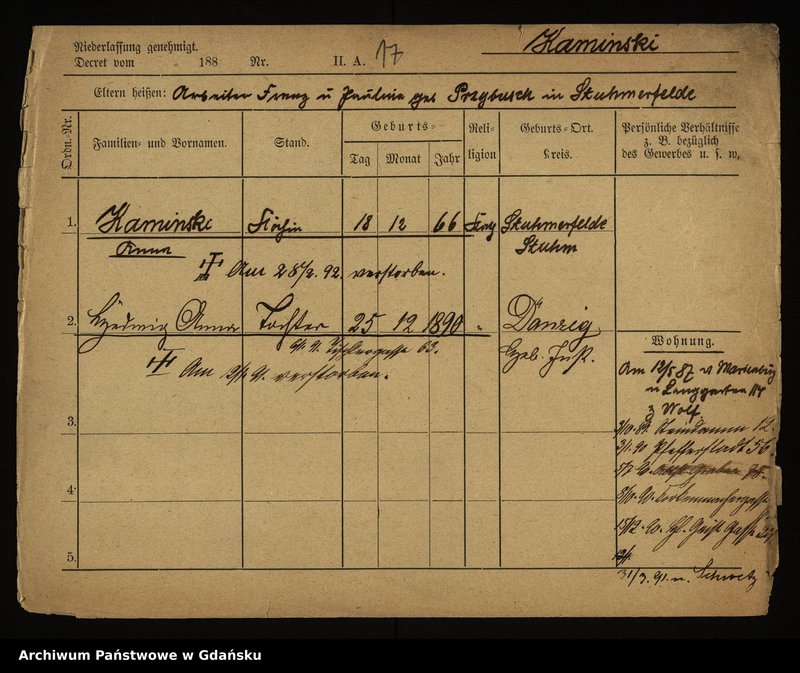 Niederlassung genehmigt. Kaminski
Decret vom 188 Nr. II. A. 17
Eltern heißen: Arbeiter Franz u Pauline geb Przybusch in Stuhmerfelde
Ordn.-Nr. Familien- und Vornamen. Stand. Geburts- Tag Monat Jahr Religion Geburts-Ort. Kreis. Persönliche Verhältnisse z. B. bezüglich des Gewerbes u. s. w.
1. Kaminski Köchin 18 12 66 Stuhmerfelde
Anna Stuhm
Am 28/2. 92. verstorben.
2. Hedwig Anna Tochter 25 12 1890 " Danzig
Tischlergasse 63.
Am verstorben.
3.
4.
5.
Wohnung.
Am 12/5 87 v Marienburg
n Langgarten 114
z Wolf
Steindamm 12
3/1. 90 Pfefferstadt 56
Graben
15/12. 90. Hl. Geist Gasse
31/3. 91. n. Schwetz
Archiwum Państwowe w Gdańsku